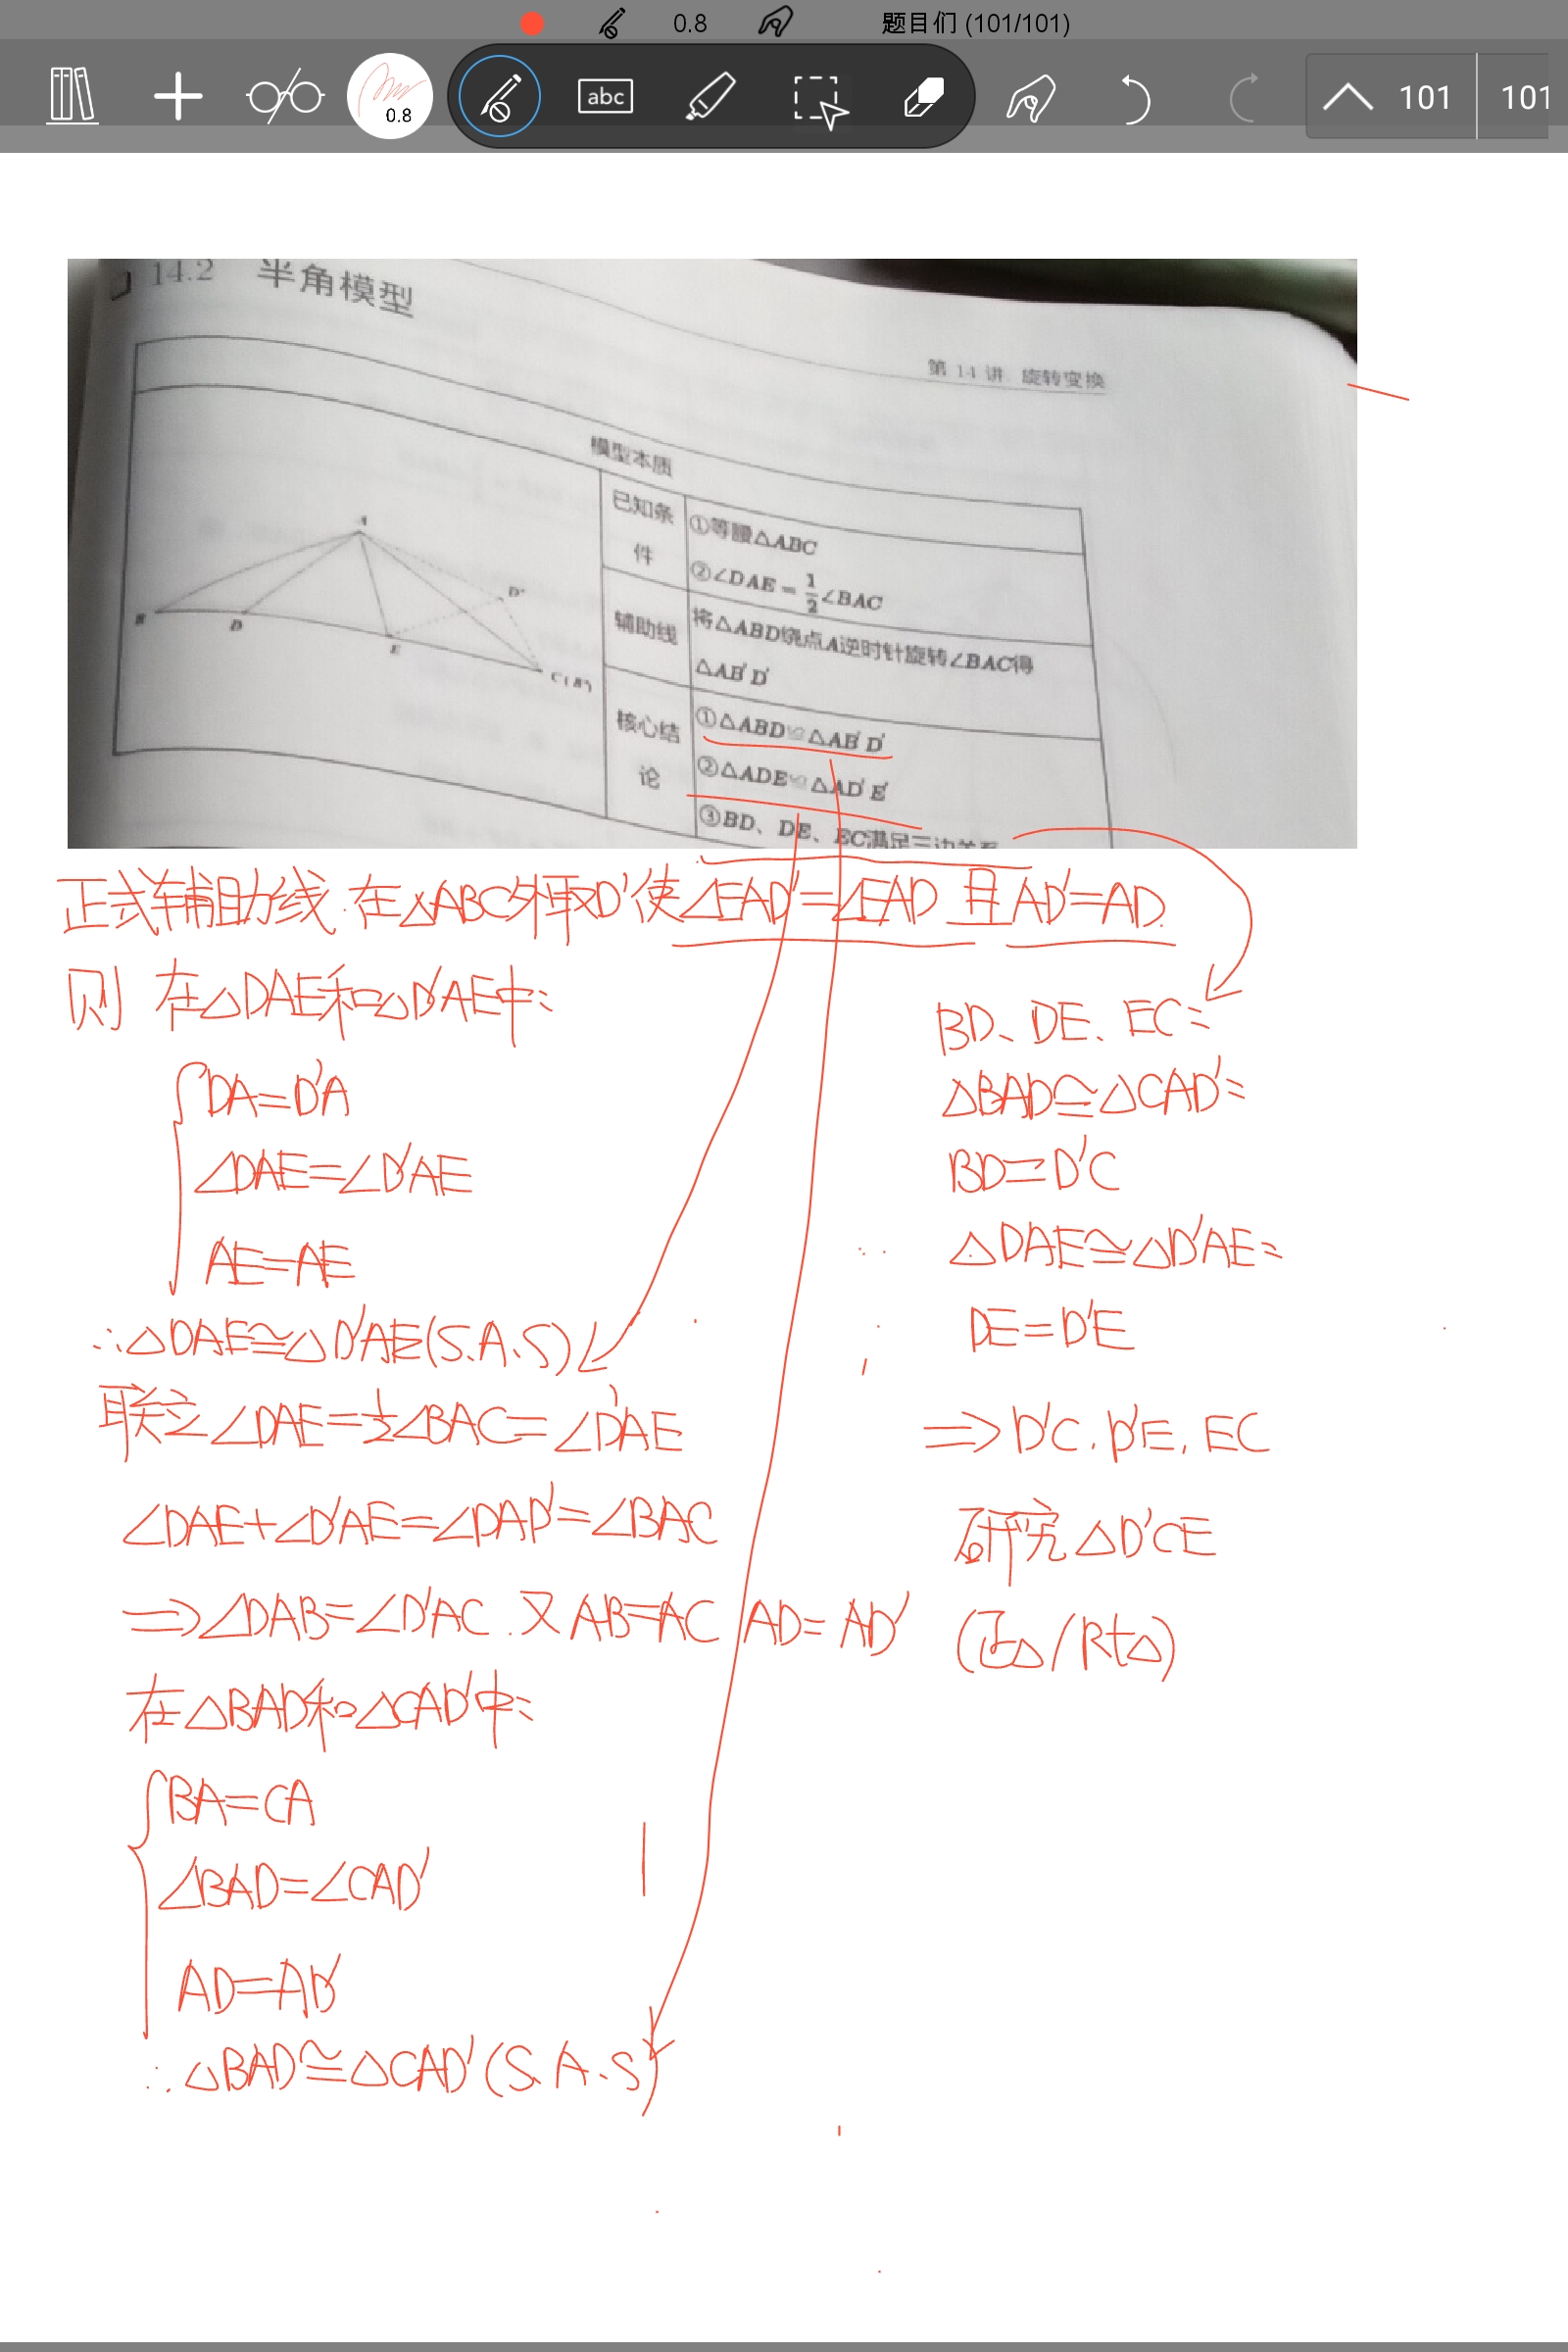 0.8 题目们 (101/101)
0.8 abc 101 101
14.2 半角模型
第 14 讲 旋转变换
模型本质
已知条件
①等腰△ABC
②∠DAE=1/2∠BAC
辅助线
将△ABD绕点A逆时针旋转∠BAC得
△AB'D'
核心结论
①△ABD≌△AB'D'
②△ADE≌△AD'E'
③BD、DE、EC满足三边关系
A
B
D
E
D'
C(B')
正式辅助线:在△ABC外取D'使∠EAD'=∠EAD 且AD'=AD.
则 在△DAE和△D'AE中:
DA=D'A
∠DAE=∠D'AE
AE=AE
∴△DAE≅△D'AE(S.A.S)
联立∠DAE=1/2∠BAC=∠D'AE
∠DAE+∠D'AE=∠DAD'=∠BAC
⇒∠DAB=∠D'AC.又AB=AC AD=AD'
在△BAD和△CAD'中:
BA=CA
∠BAD=∠CAD'
AD=AD'
∴△BAD≅△CAD'(S.A.S)
BD、DE、EC:
△BAD≅△CAD':
BD=D'C
△DAE≅△D'AE:
DE=D'E
⇒D'C.D'E.EC
研究△D'CE
(正△/Rt△)